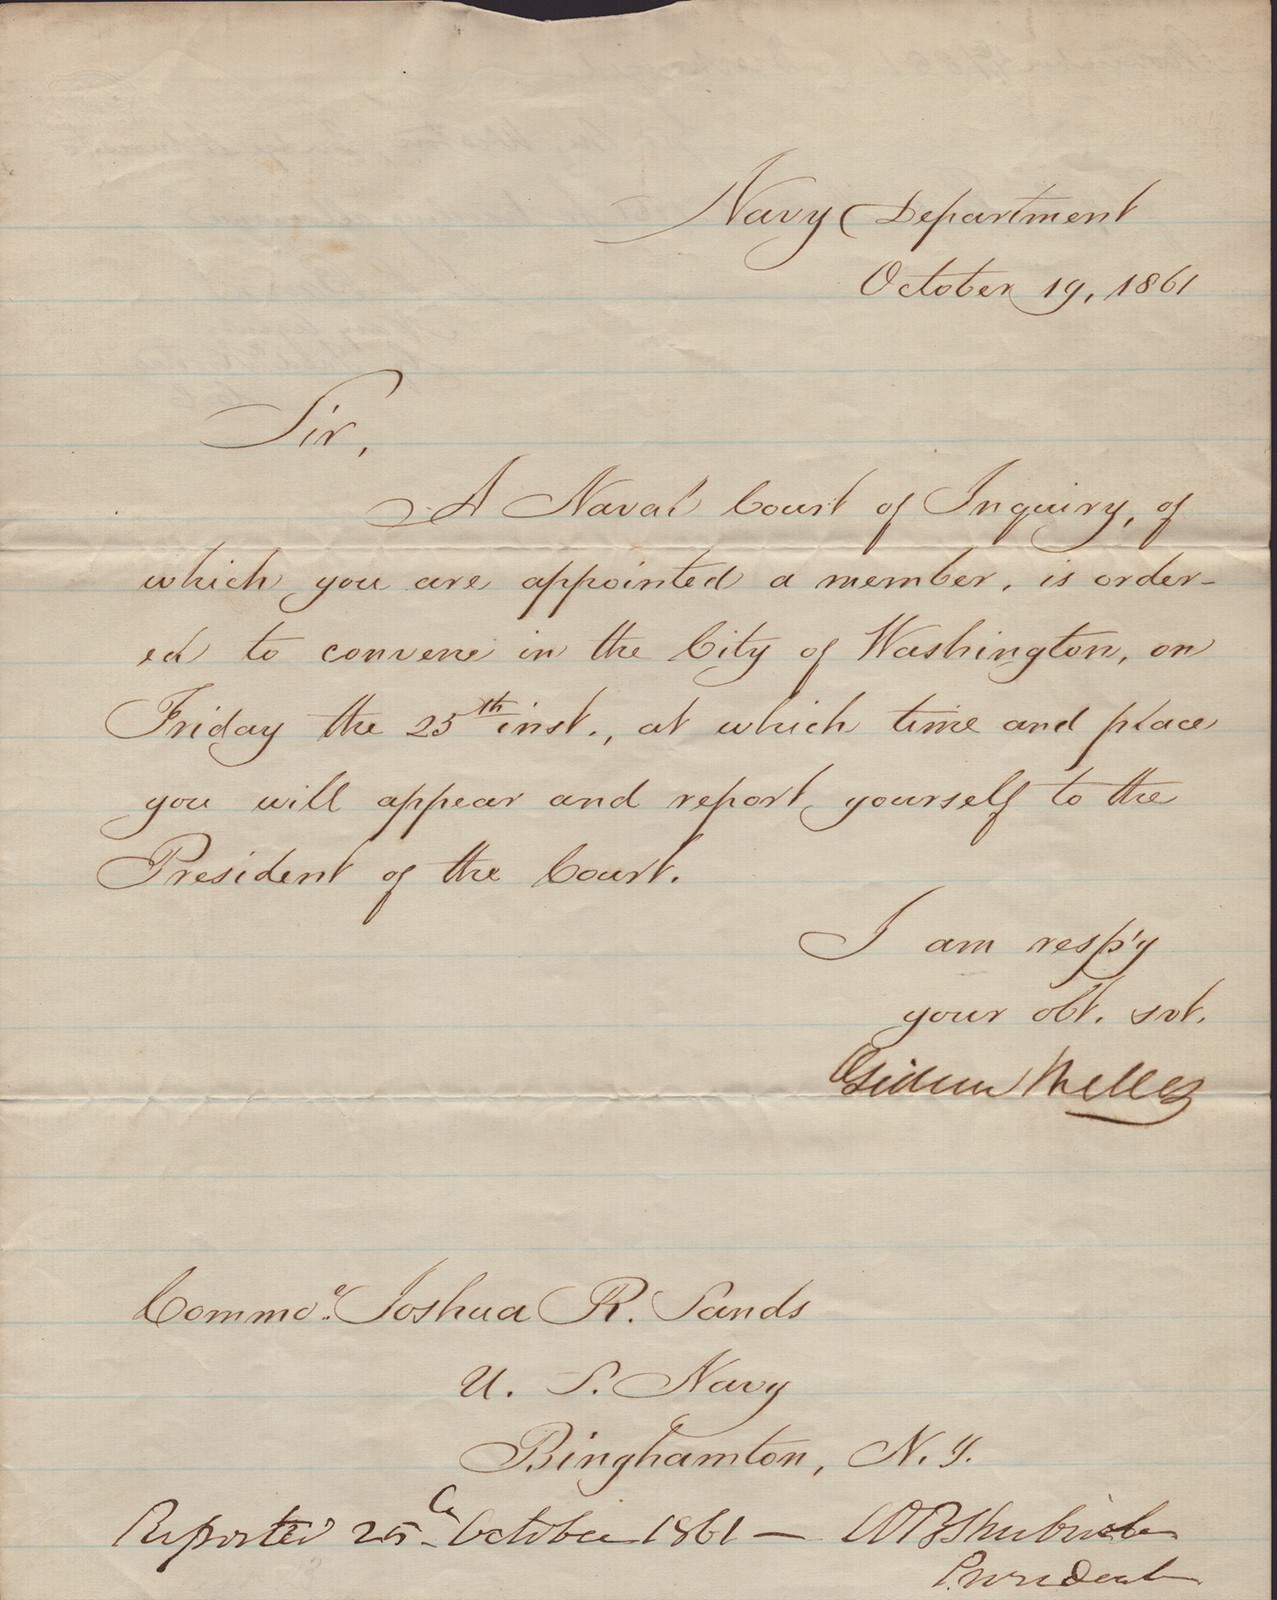 Navy Department
October 19, 1861
Sir,
A Naval Court of Inquiry, of
which you are appointed a member, is order-
ed to convene in the City of Washington, on
Friday the 25th inst., at which time and place
you will appear and report yourself to the
President of the Court.
I am resp'y
your obt. svt.
Gideon Welles
Commoe. Joshua R. Sands
U. S. Navy
Binghamton, N. Y.
Reported 25th October 1861 — WB Shubrick
President